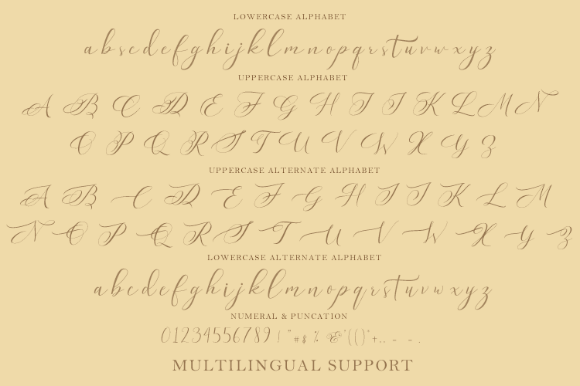 LOWERCASE ALPHABET
a b s c d e f g h i j k l m n o p q r s t u v w x y z
UPPERCASE ALPHABET
A B C D E F G H I J K L M N
O P Q R S T U V W X Y Z
UPPERCASE ALTERNATE ALPHABET
A B C D E F G H I J K L M
N O P Q R S T U V W X Y Z
LOWERCASE ALTERNATE ALPHABET
a b c d e f g h i j k l m n o p q r s t u v w x y z
NUMERAL & PUNCATION
0123456789 ! " # $ % & ' ( ) * + , . -
MULTILINGUAL SUPPORT